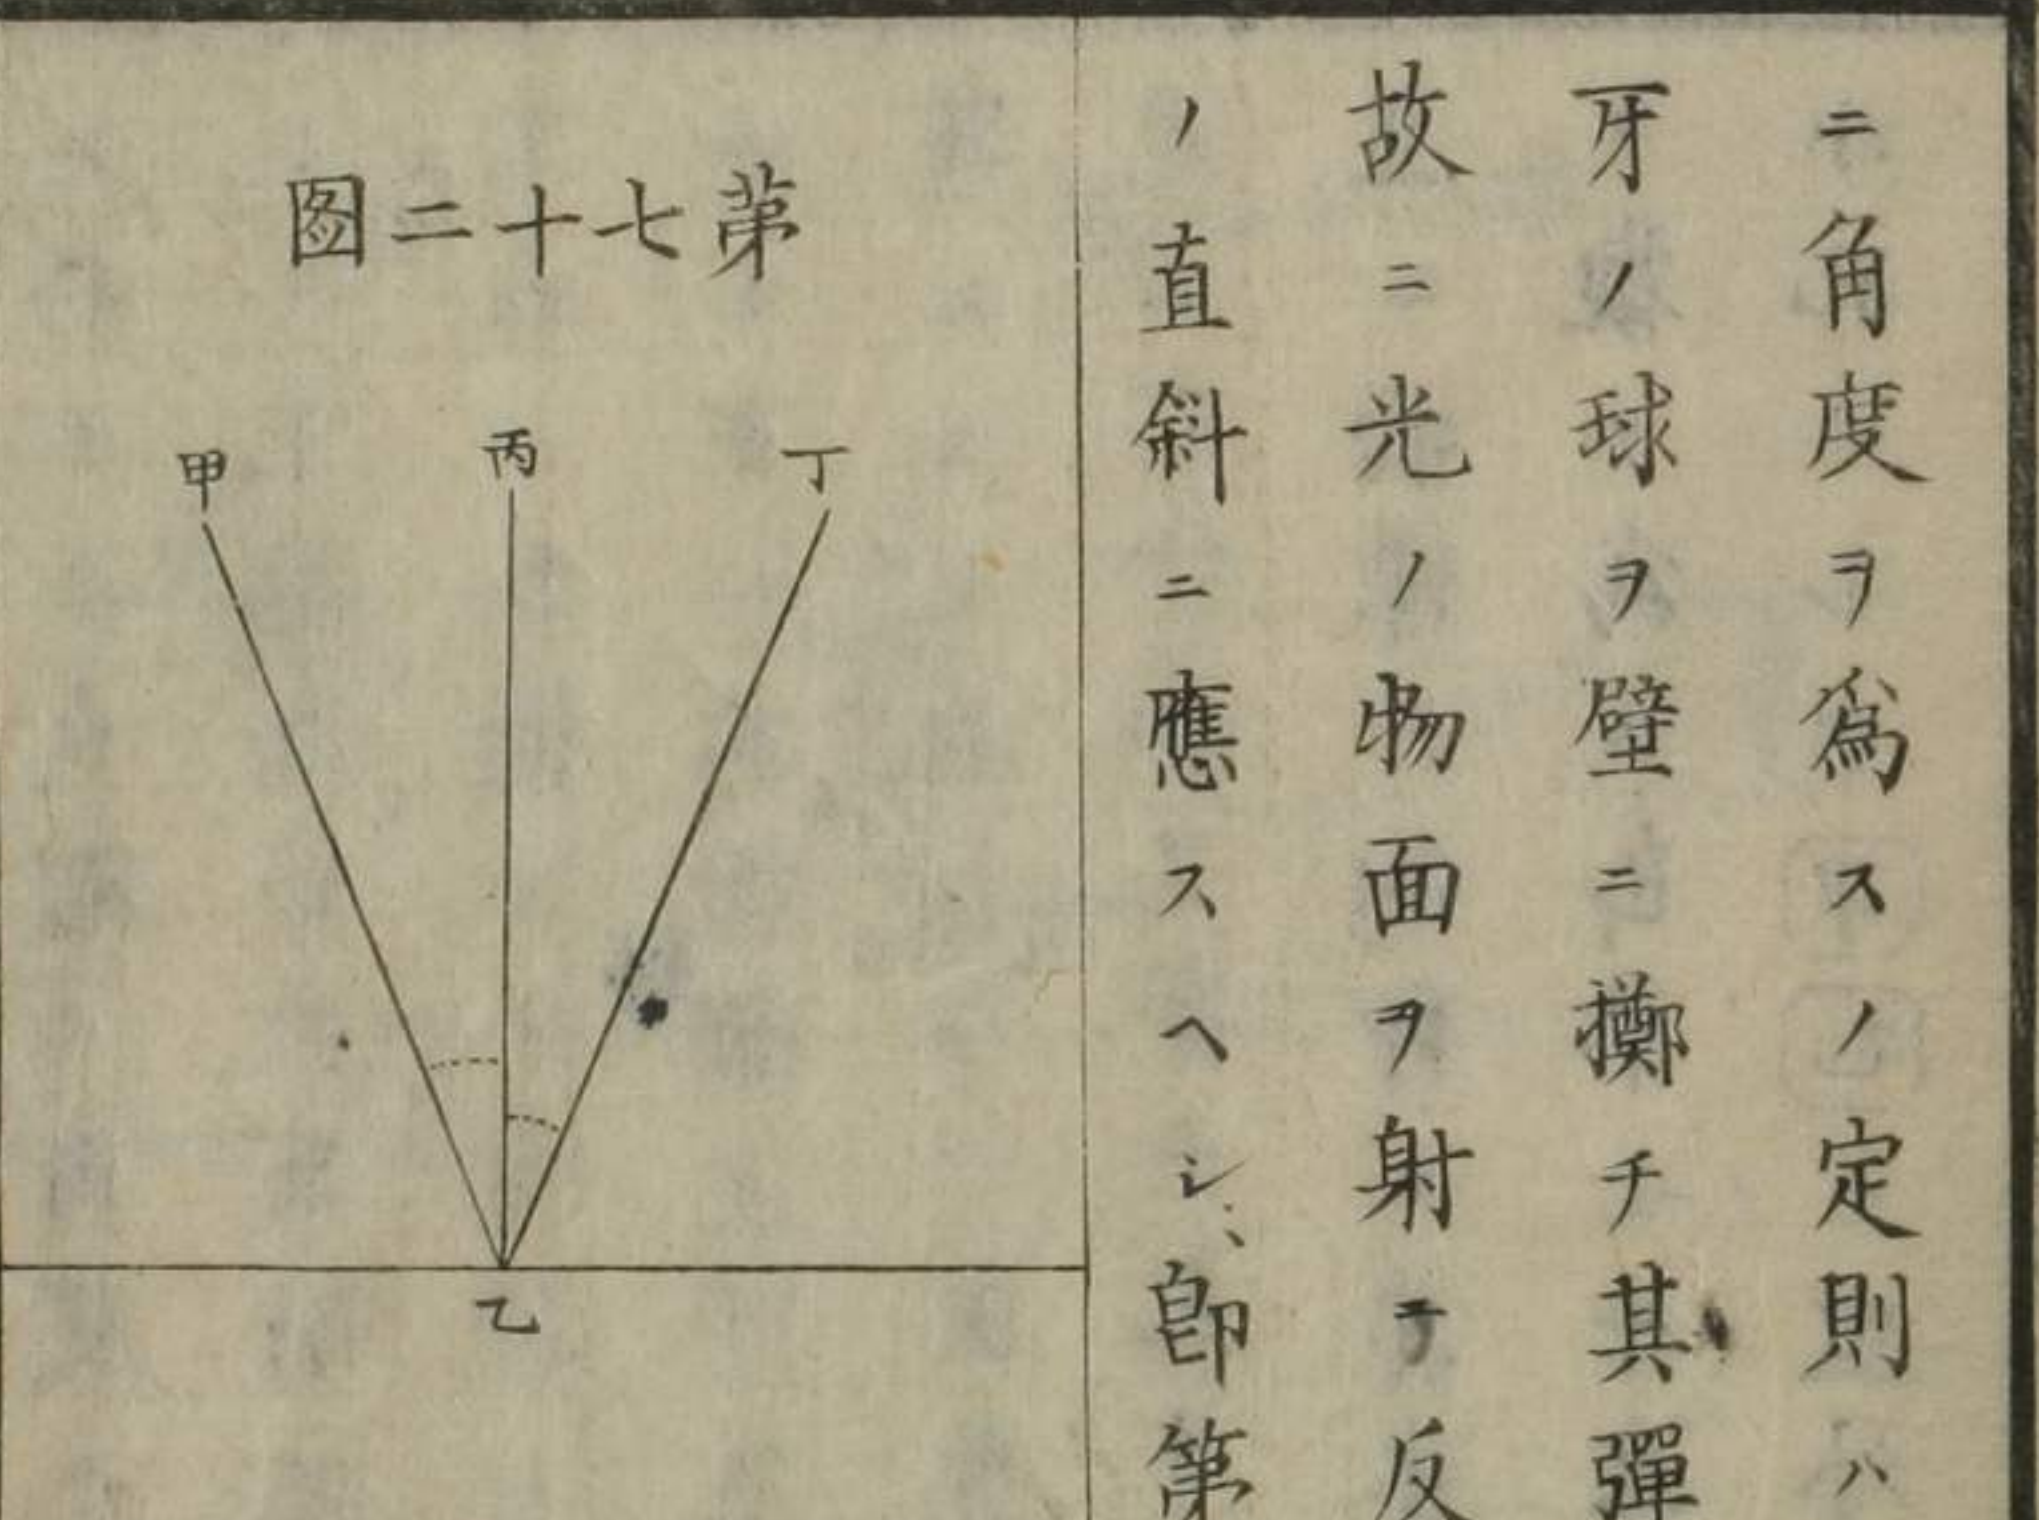 ニ角度ヲ爲スノ定則ハ
牙ノ球ヲ壁ニ擲チ其彈
故ニ光ノ物面ヲ射テ反
ノ直斜ニ應スヘシ、即第
第七十二図
丁
丙
甲
乙